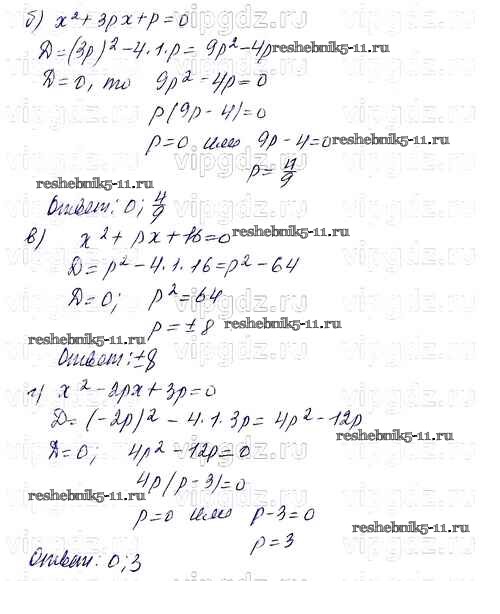 б) x² + 3px + p = 0
D = (3p)² - 4·1·p = 9p² - 4p
reshebnik5-11.ru
D = 0, то 9p² - 4p = 0
p(9p - 4) = 0
p = 0 или 9p - 4 = 0
reshebnik5-11.ru
p = 4/9
reshebnik5-11.ru
Ответ: 0; 4/9
в) x² + px + 16 = 0
reshebnik5-11.ru
D = p² - 4·1·16 = p² - 64
D = 0; p² = 64
p = ±8
reshebnik5-11.ru
reshebnik5-11.ru
Ответ: ±8
г) x² - 2px + 3p = 0
D = (-2p)² - 4·1·3p = 4p² - 12p
reshebnik5-11.ru
D = 0; 4p² - 12p = 0
4p(p - 3) = 0
reshebnik5-11.ru
p = 0 или p - 3 = 0
reshebnik5-11.ru
p = 3
Ответ: 0; 3
vipgdz.ru